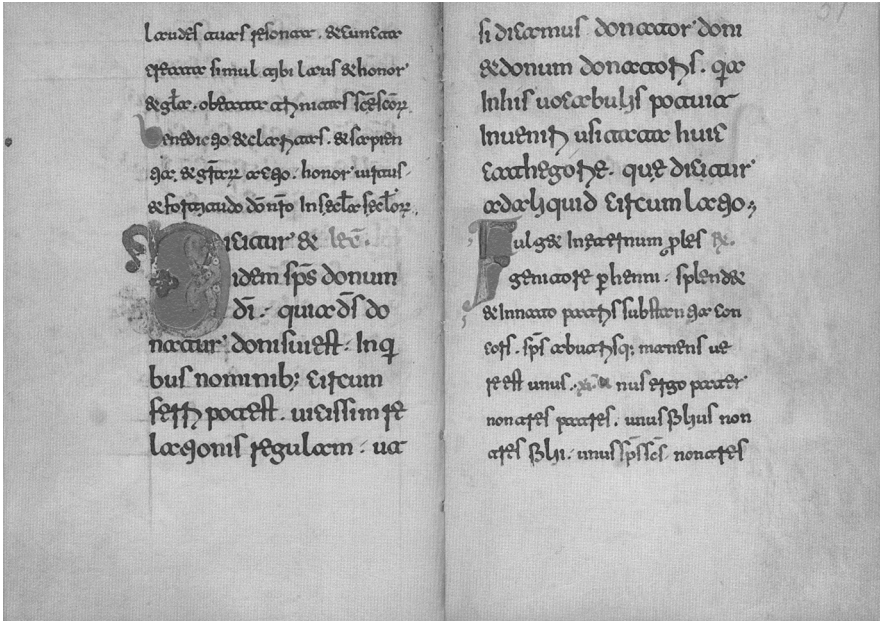 laudes tuas resonat . & cuncta
creata simul tibi laus & honor
& gła . &ernitas
benedictio & claritas . & sapien
tia . & gr̄arꝝ actio . honor virtus .
& fortitudo dō nr̄o In secła secłorꝝ .
Dicitur & lec̄ .
idem sp̄s donum
dī . quia ds̄ do
natur donisui est . In qi
bus nominib; circum
ferri potest . vicissim re
lationis regulam . ut
si dicamus donator doni
& donum donatoris . qa
In his vocabulis potuit
Inveniri usitata huic
cathegorie . que dicitur
ad aliquid circum latio;
Fulget In eternum ꝓles
genitore ꝑhenni . splend&
& Innato patris substantia con
cors . sp̄s abutrisq; manens ve
re est unus . nus ergo pater
non tres patres . unus filius non
tres filii . unus sp̄s sc̄s non tres